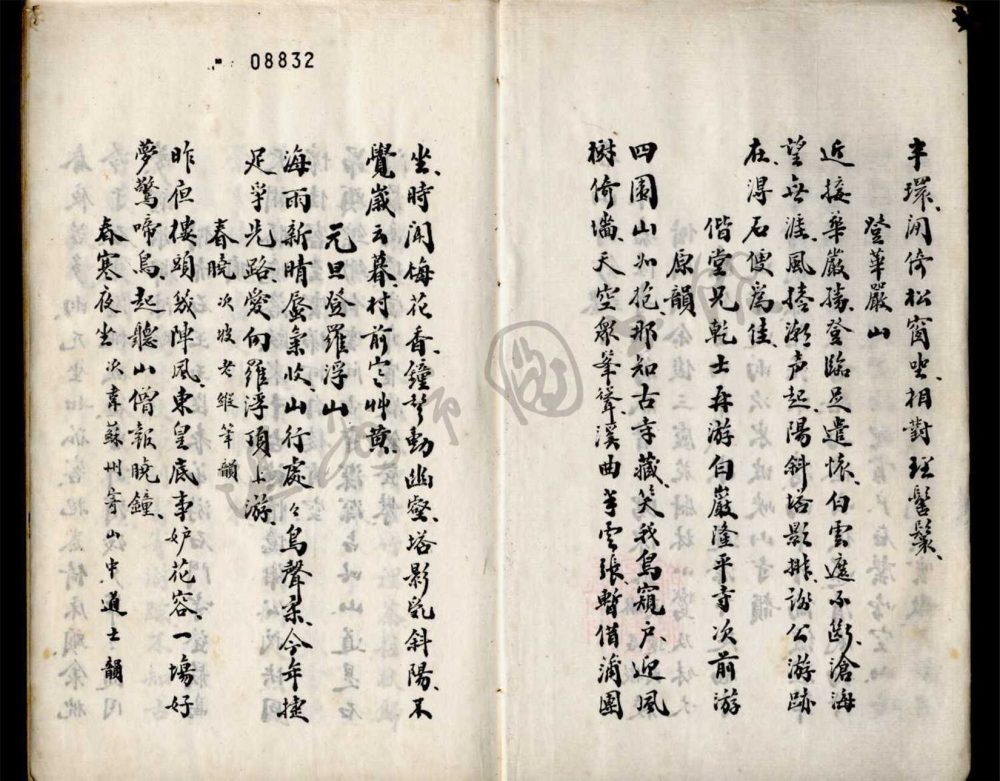 08832
半環、閑倚松窗坐、相對理髻鬟、
登華嚴山
近接華嚴勝、登臨足遣懷、白雲遮不斷、滄海
望無涯、風捲潮声起、陽斜塔影排、訪公游跡
在、得石便為佳、
偕堂兄乾士再游白巖隆平寺次前游
原韻
四圍山如抱、那知古寺藏、笑我鳥窺戶、迎風
樹倚墻、天空眾峯聳、溪曲半雲張、暫借蒲團
坐、時聞梅花香、鐘聲動幽壑、塔影亂斜陽、不
覺歲云暮、村前艸黃、
元旦登羅浮山
海雨新晴蜃氣收、山行處々鳥聲柔、今年捷
足爭先路、愛向羅浮頂上游、
春曉 次坡老縱筆韻
昨夜樓頭幾陣風、東皇底事妒花容、一場好
夢驚啼鳥、起聽山僧報曉鐘、
春寒夜坐 次韋蘇州寄山中道士韻